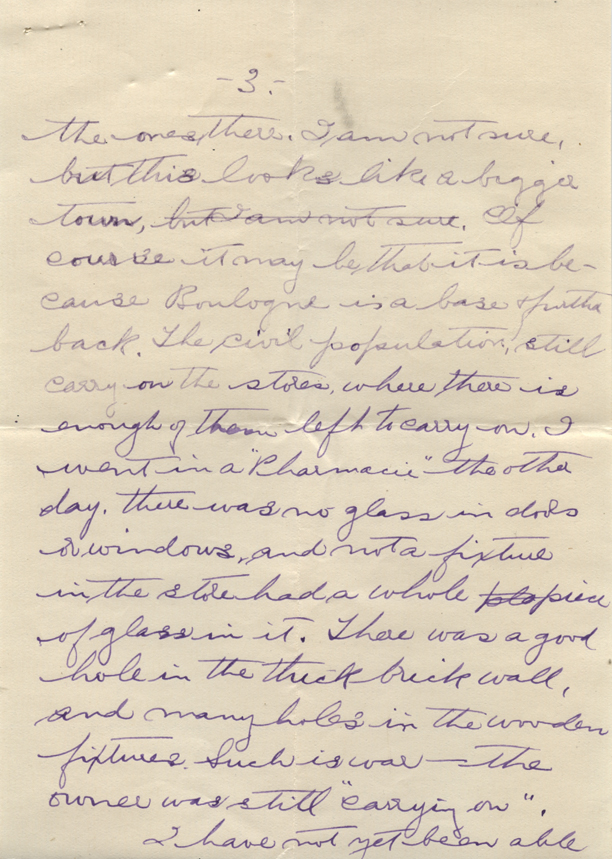 -3.-
the ones there. I am not sure,
but this looks like a bigger
town, but I am not sure. Of
course it may be, that it is be-
cause Boulogne is a base & furthe
back. The civil population, still
carry on the stores, where there is
enough of them left to carry on. I
went in a "Pharmacie" the other
day. There was no glass in doors
or windows, and not a fixture
in the store had a whole piece
of glass in it. There was a good
hole in the thick brick wall,
and many holes in the wooden
fixtures. Such is war — the
owner was still "carrying on".
I have not yet been able